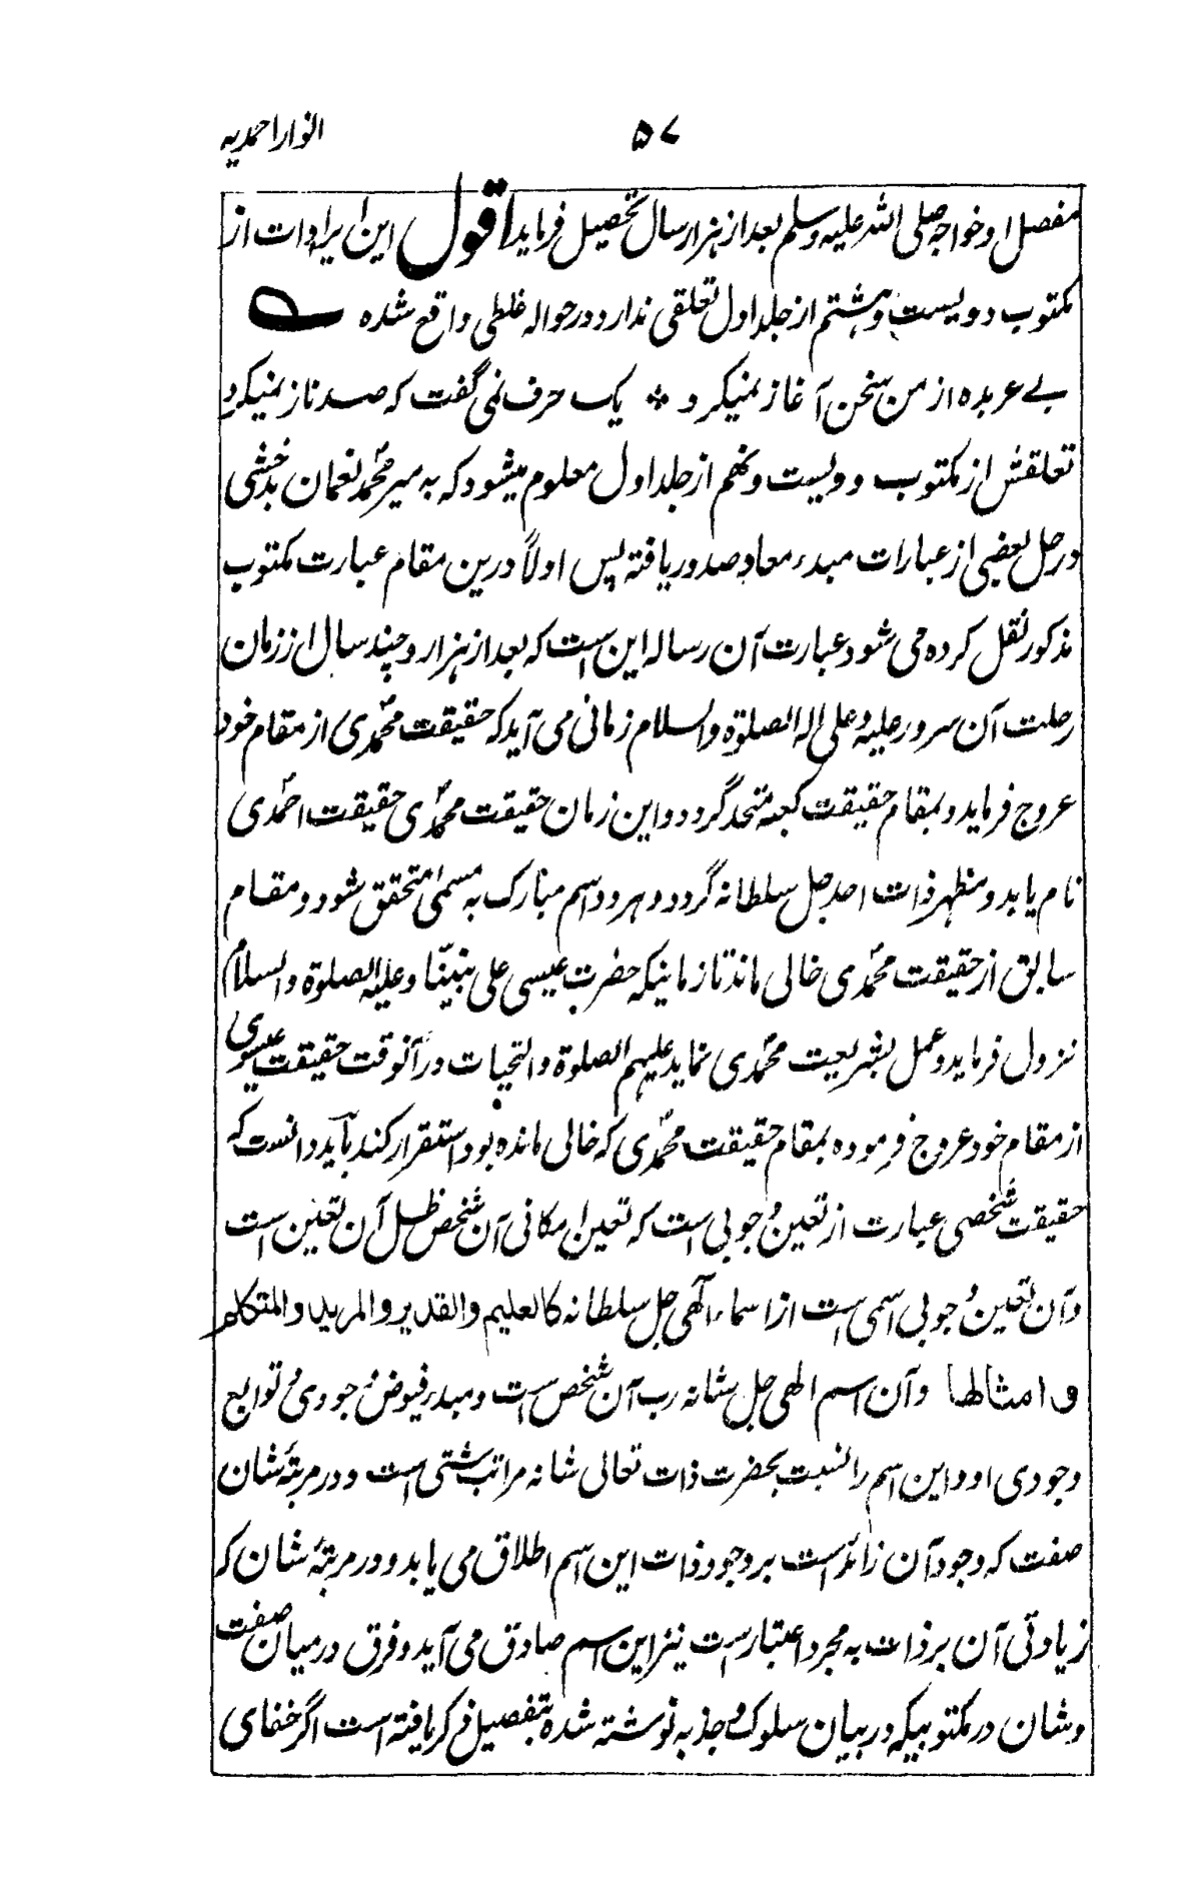 ۵۷ انوار احمدیہ
مفصل او خواجہ صلی اللہ علیہ وسلم بعد از ہزار سال تحصیل فرماید اقول این ایرادات از
مکتوب دویست وہشتم از جلد اول تعلقی ندارد و در حوالہ غلطی واقع شدہ
بے عربدہ از من سخن آغاز نمیکرد * یک حرف نمی گفت کہ صد ناز نمیکرد
تعلقش از مکتوب دویست ونہم از جلد اول معلوم میشود کہ بہ میر محمد نعمان بدخشی
در حل بعضی از عبارات مبدء معاد صدور یافتہ پس اولاً درین مقام عبارت مکتوب
مذکور نقل کردہ می شود عبارت آن رسالہ این ست کہ بعد از ہزار و چند سال از زمان
رحلت آن سرور علیہ وعلی الہ الصلوۃ والسلام زمانی می آید کہ حقیقت محمدی از مقام خود
عروج فرماید و بمقام حقیقت کعبہ متحد گردد و این زمان حقیقت محمدی حقیقت احمدی
نام یابد و مظہر ذات احد جل سلطانہ گردد و ہر دو اسم مبارک بہ مسمی متحقق شود و مقام
سابق از حقیقت محمدی خالی ماند تا زمانیکہ حضرت عیسی علی نبینا وعلیہ الصلوۃ والسلام
نزول فرماید و عمل بشریعت محمدی نماید علیہم الصلوۃ والتحیات در آنوقت حقیقت عیسوی
از مقام خود عروج فرمودہ بمقام حقیقت محمدی کہ خالی ماندہ بود استقرار کند باید دانست کہ
حقیقت شخصی عبارت از تعین وجوبی است کہ تعین امکانی آن شخص ظل آن تعین است
و آن تعین وجوبی اسمی است از اسماء الٓہی جل سلطانہ کالعلیم والقدیر والمرید والمتکلم
وامثالها و آن اسم الهی جل شانہ رب آن شخص ست و مبدء فیوض وجودی و توابع
وجودی او و این اسم را نسبت بحضرت ذات تعالی شانہ مراتب شتی است و در مرتبۂ شان
صفت کہ وجود آن زائد است بر وجود ذات این اسم اطلاق می یابد و در مرتبۂ شان کہ
زیادتی آن بر ذات بہ مجرد اعتبار ست نیز این اسم صادق می آید و فرق درمیان صفت
و شان در مکتوبیکہ در بیان سلوک و جذبہ نوشتہ شدہ بتفصیل ذکر یافتہ است اگر خفای